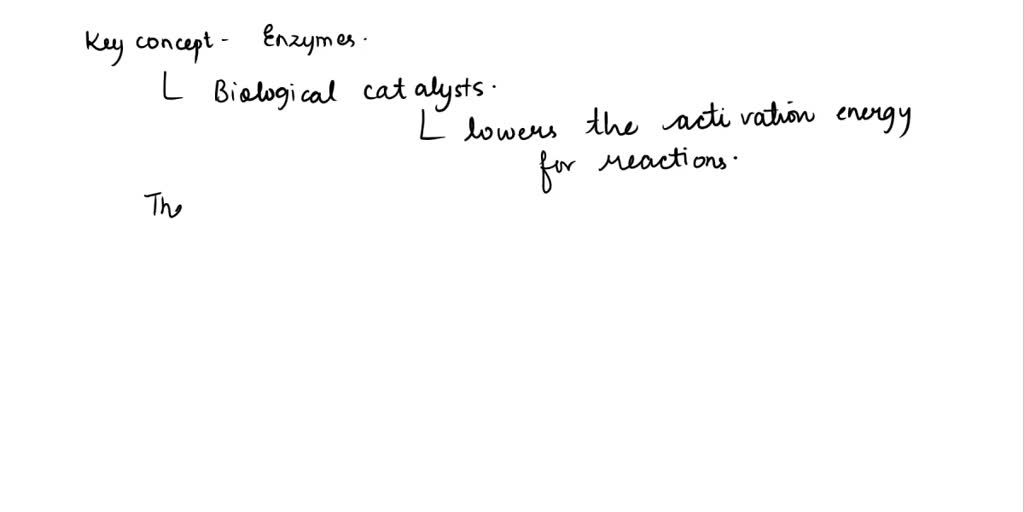 Key concept - Enzymes.
Biological catalysts.
lowers the activation energy
for reactions.
The